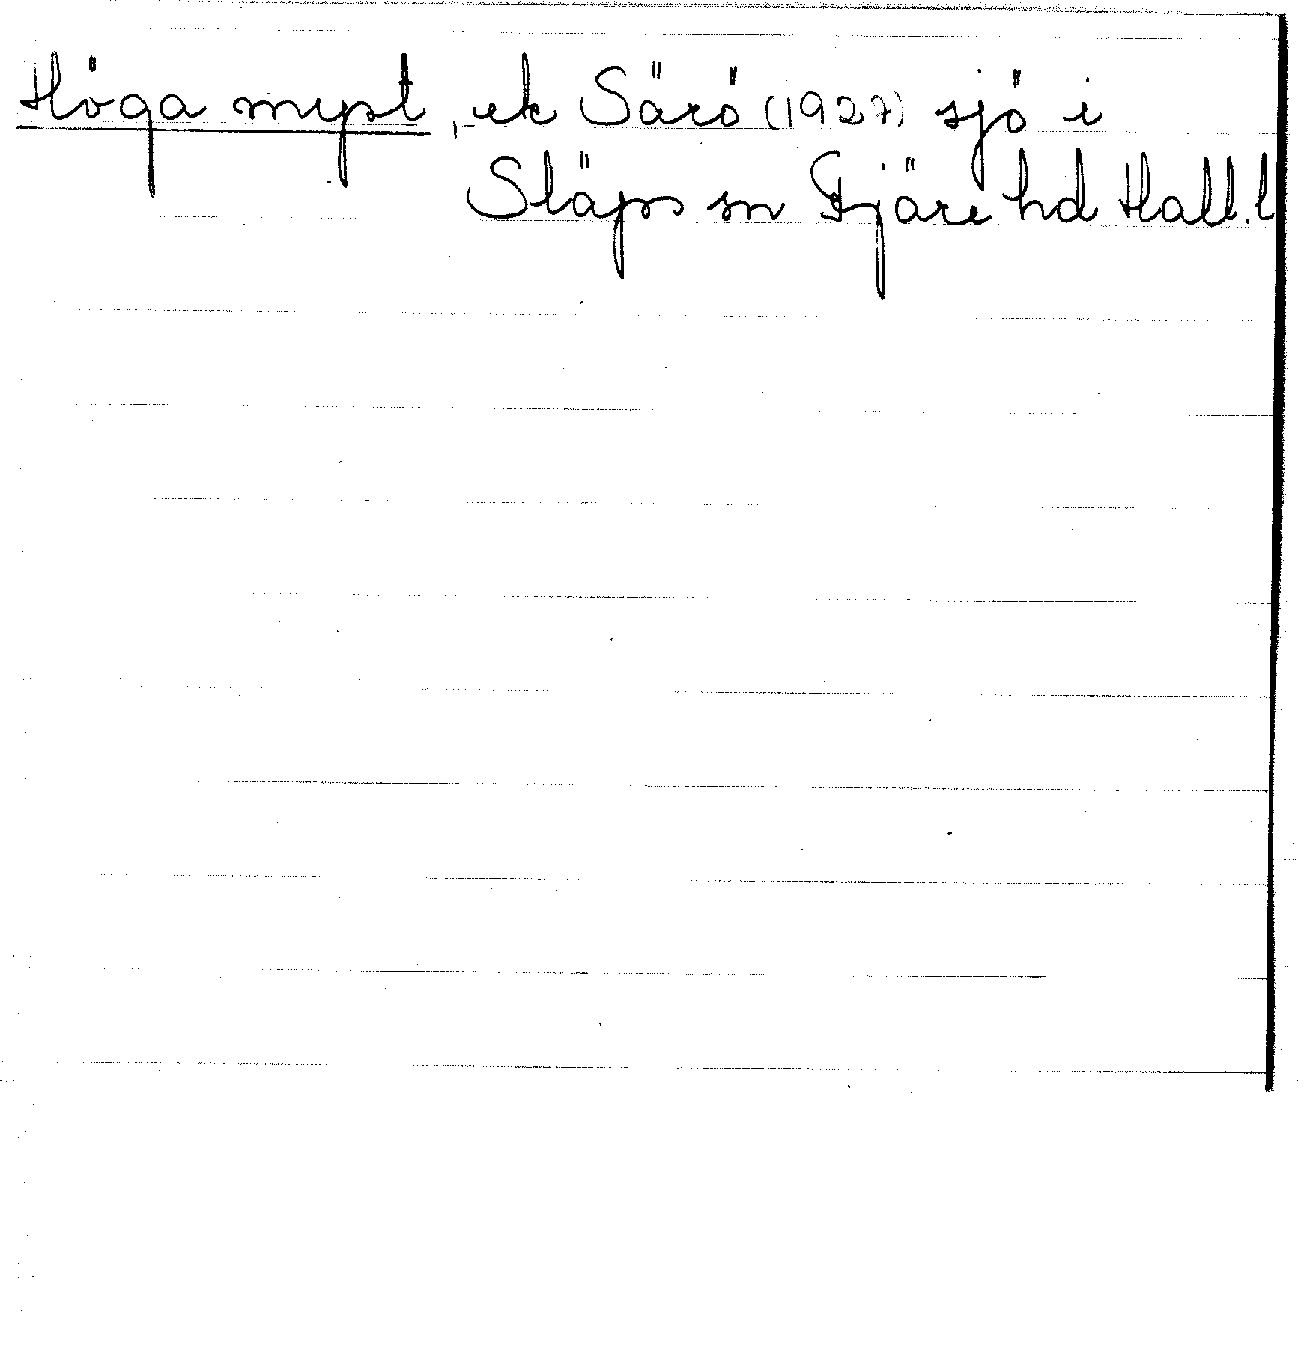 Höga mypt, ek Särö (1927) sjö i
Släps sn Fjäre hd Hall. l